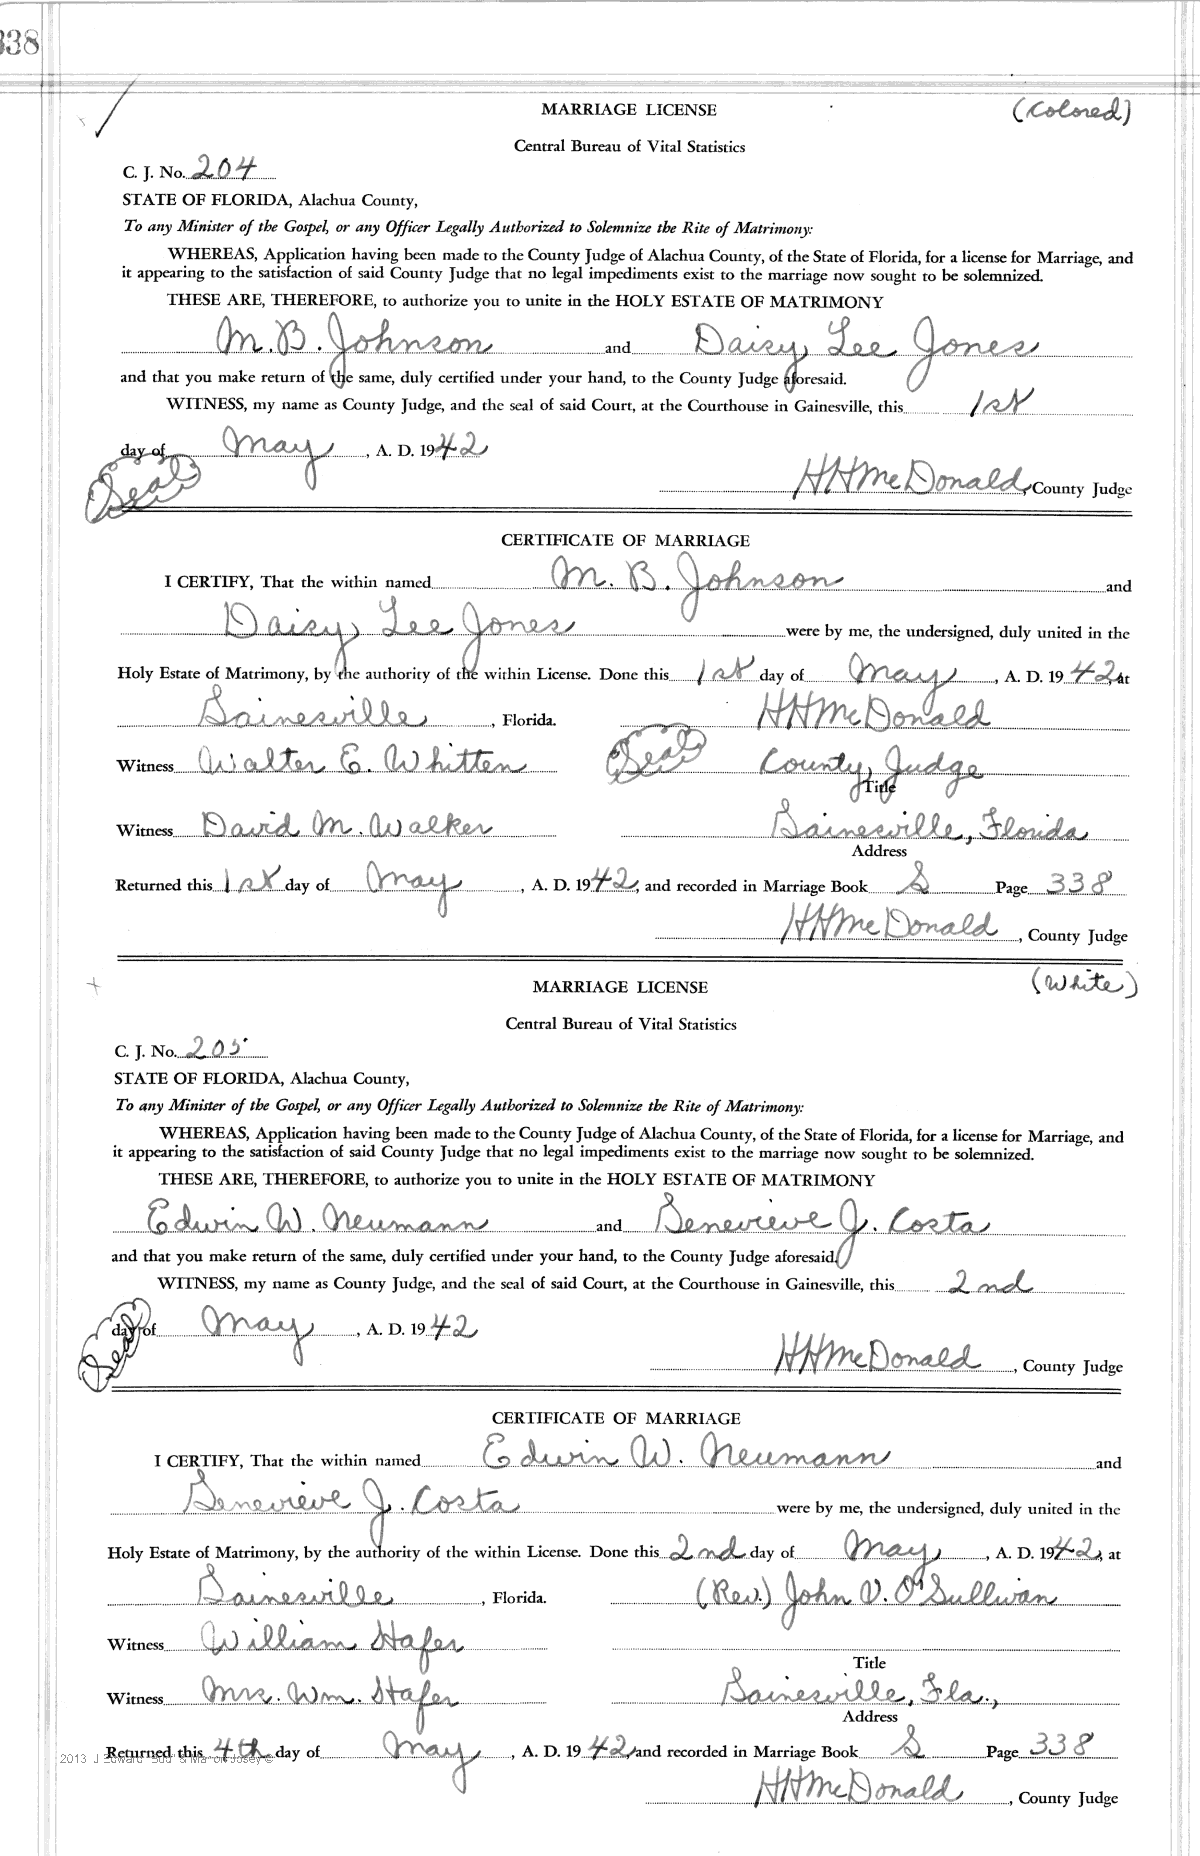 338
MARRIAGE LICENSE (Colored)
Central Bureau of Vital Statistics
C. J. No. 204
STATE OF FLORIDA, Alachua County,
To any Minister of the Gospel, or any Officer Legally Authorized to Solemnize the Rite of Matrimony:
WHEREAS, Application having been made to the County Judge of Alachua County, of the State of Florida, for a license for Marriage, and
it appearing to the satisfaction of said County Judge that no legal impediments exist to the marriage now sought to be solemnized.
THESE ARE, THEREFORE, to authorize you to unite in the HOLY ESTATE OF MATRIMONY
M. B. Johnson and Daisy Lee Jones
and that you make return of the same, duly certified under your hand, to the County Judge aforesaid.
WITNESS, my name as County Judge, and the seal of said Court, at the Courthouse in Gainesville, this 1st
day of May, A. D. 1942
Seal HHMcDonald, County Judge
CERTIFICATE OF MARRIAGE
I CERTIFY, That the within named M. B. Johnson and
Daisy Lee Jones were by me, the undersigned, duly united in the
Holy Estate of Matrimony, by the authority of the within License. Done this 1st day of May, A. D. 1942, at
Gainesville, Florida. HHMcDonald
Witness Walter E. Whitten Seal County Judge
Title
Witness David M. Walker Gainesville, Florida
Address
Returned this 1st day of May, A. D. 1942, and recorded in Marriage Book S Page 338
HHMcDonald, County Judge
MARRIAGE LICENSE (White)
Central Bureau of Vital Statistics
C. J. No. 205
STATE OF FLORIDA, Alachua County,
To any Minister of the Gospel, or any Officer Legally Authorized to Solemnize the Rite of Matrimony:
WHEREAS, Application having been made to the County Judge of Alachua County, of the State of Florida, for a license for Marriage, and
it appearing to the satisfaction of said County Judge that no legal impediments exist to the marriage now sought to be solemnized.
THESE ARE, THEREFORE, to authorize you to unite in the HOLY ESTATE OF MATRIMONY
Edwin W. Neumann and Genevieve J. Costa
and that you make return of the same, duly certified under your hand, to the County Judge aforesaid.
WITNESS, my name as County Judge, and the seal of said Court, at the Courthouse in Gainesville, this 2nd
day of May, A. D. 1942
Seal HHMcDonald, County Judge
CERTIFICATE OF MARRIAGE
I CERTIFY, That the within named Edwin W. Neumann and
Genevieve J. Costa were by me, the undersigned, duly united in the
Holy Estate of Matrimony, by the authority of the within License. Done this 2nd day of May, A. D. 1942, at
Gainesville, Florida. (Rev.) John V. O'Sullivan
Witness William Hafer
Title
Witness Mrs. Wm. Hafer Gainesville, Fla.,
Address
Returned this 4th day of May, A. D. 1942, and recorded in Marriage Book S Page 338
HHMcDonald, County Judge
2013 J Edward